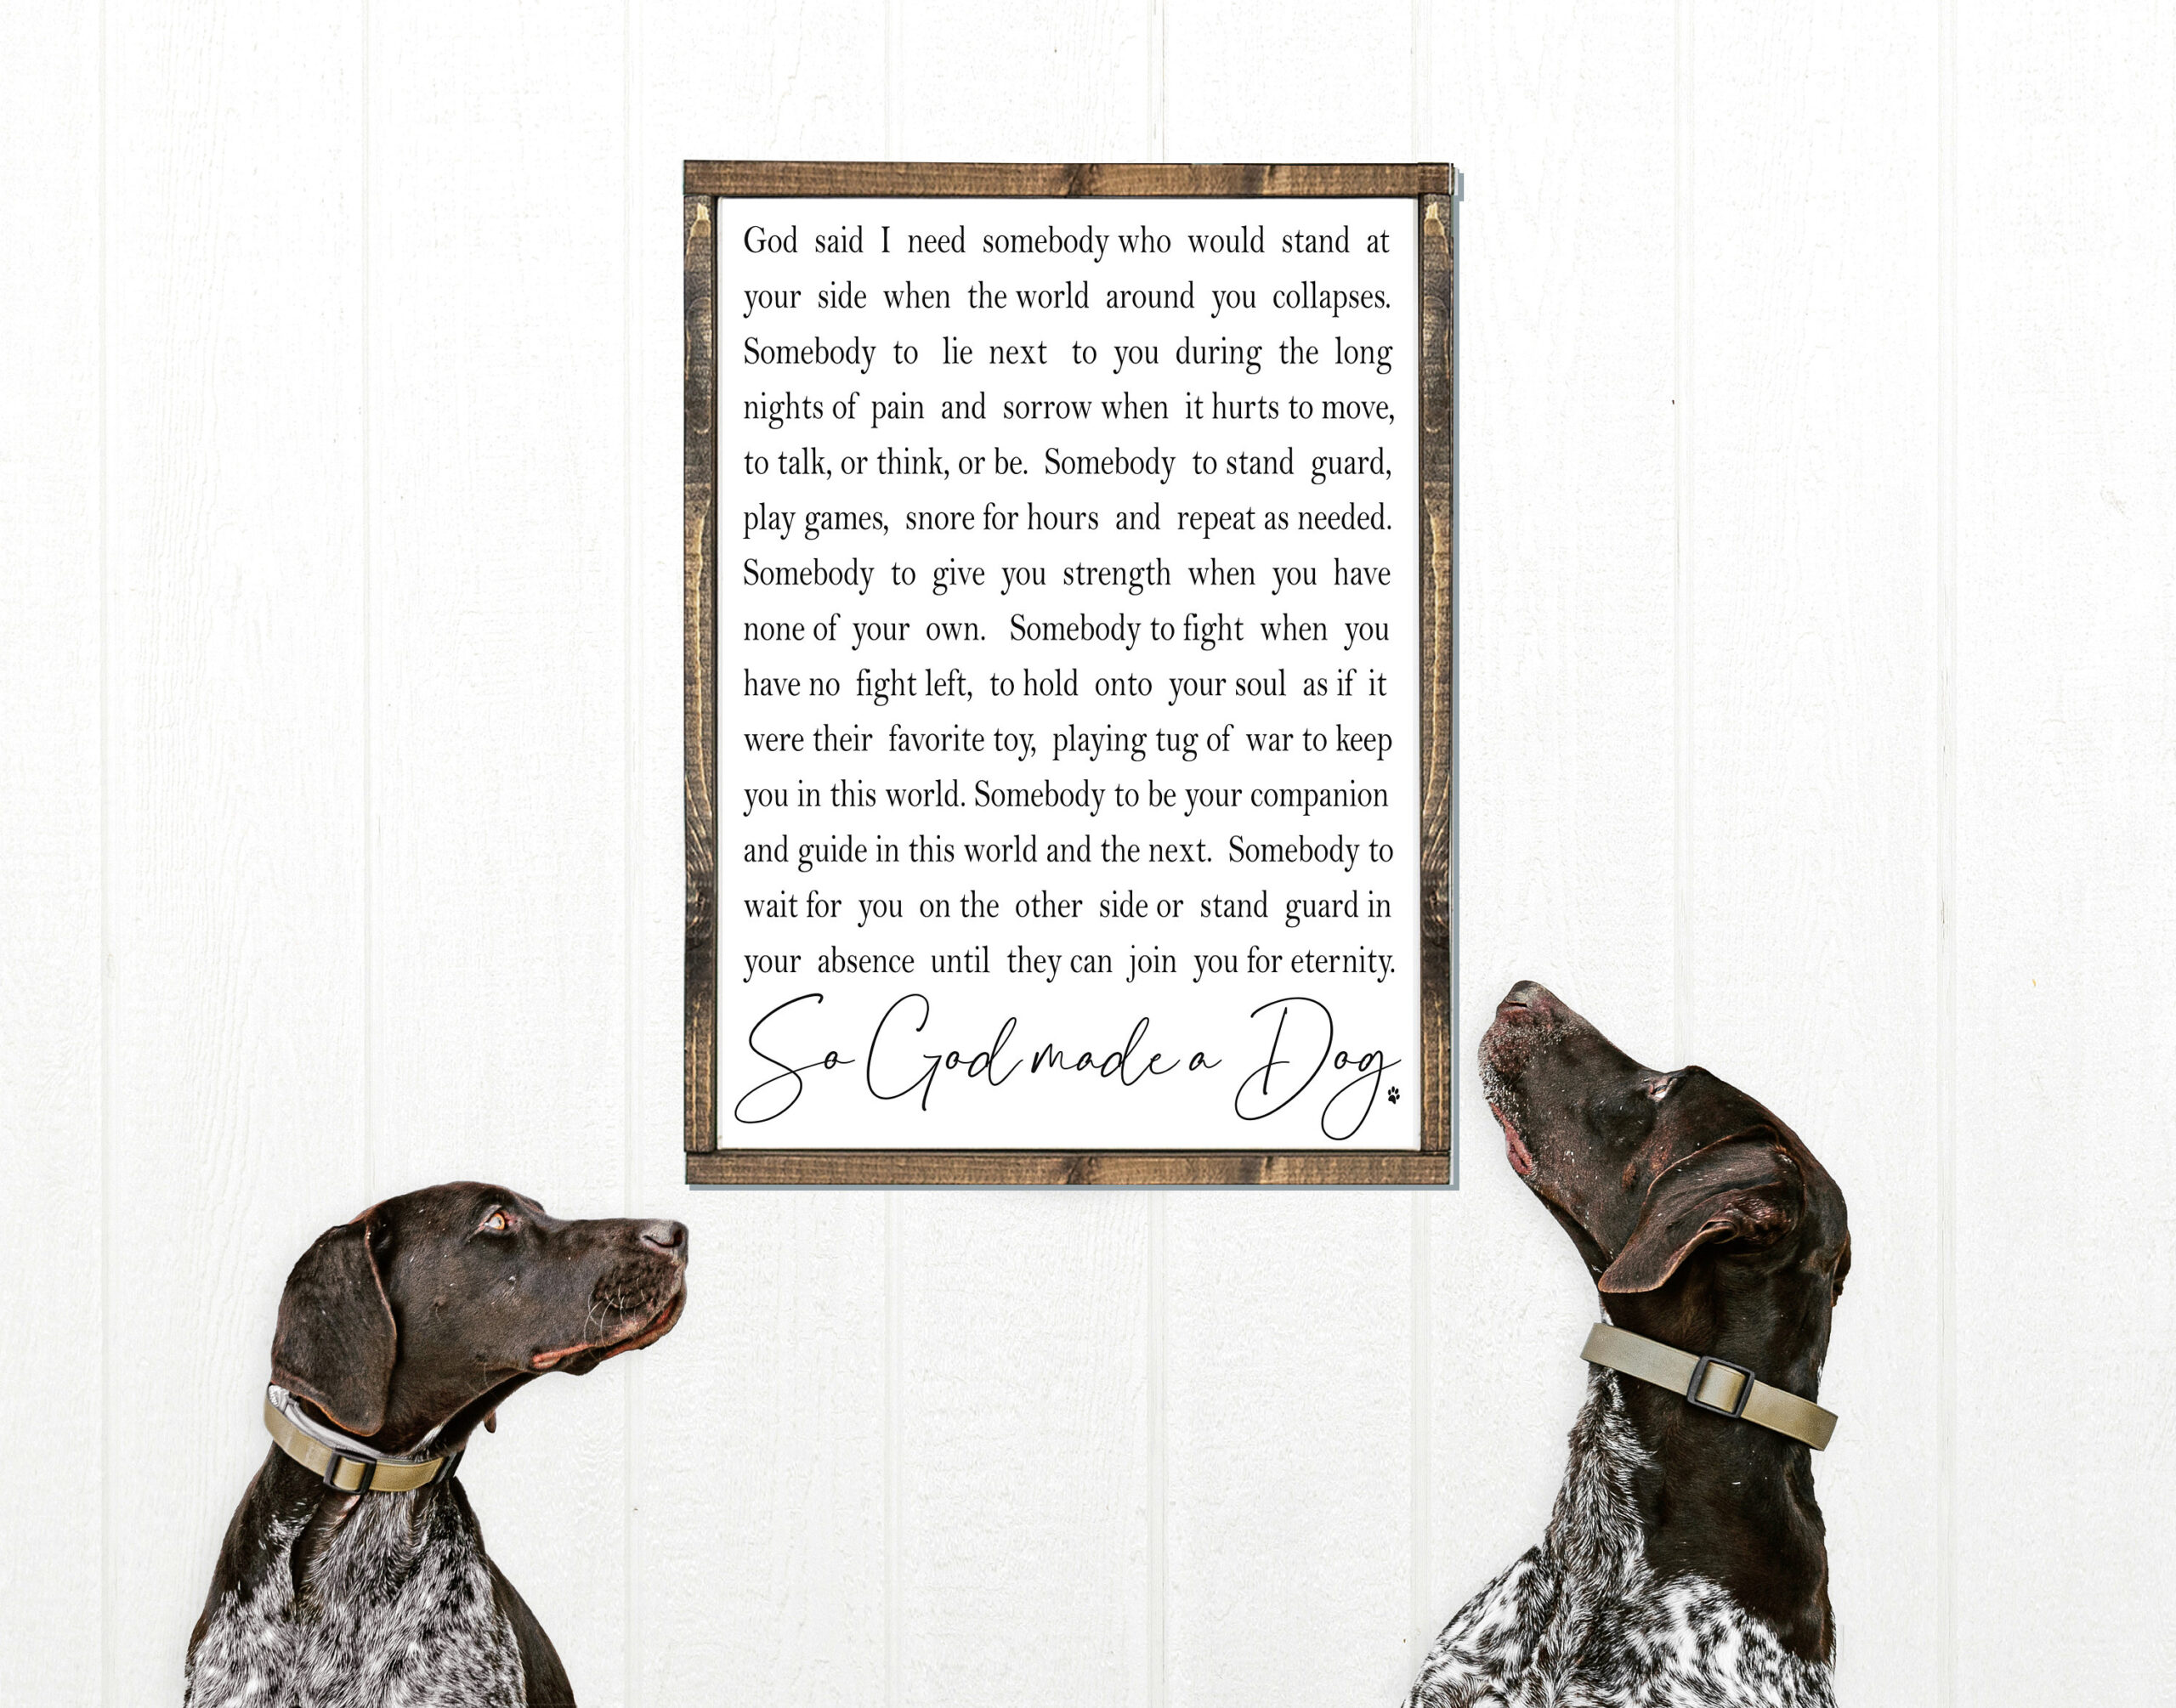 God said I need somebody who would stand at
your side when the world around you collapses.
Somebody to lie next to you during the long
nights of pain and sorrow when it hurts to move,
to talk, or think, or be. Somebody to stand guard,
play games, snore for hours and repeat as needed.
Somebody to give you strength when you have
none of your own. Somebody to fight when you
have no fight left, to hold onto your soul as if it
were their favorite toy, playing tug of war to keep
you in this world. Somebody to be your companion
and guide in this world and the next. Somebody to
wait for you on the other side or stand guard in
your absence until they can join you for eternity.
So God made a Dog